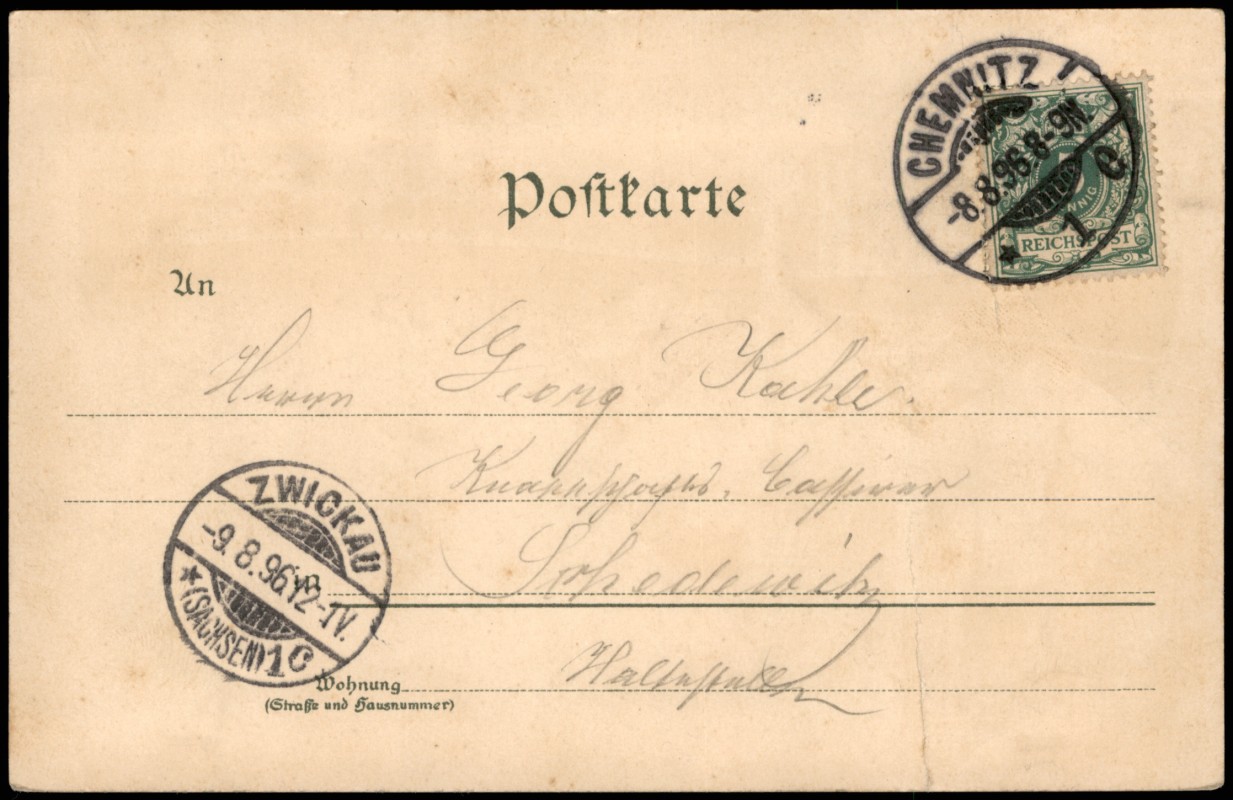 CHEMNITZ
-8.8.96.8-9N.
* 1 C
PFENNIG
REICHSPOST
Postkarte
An
Herrn Georg Kahle.
Knappschafts. Cassirer
Schedewitz
Haltestelle
ZWICKAU
-9.8.96.12-1V.
* (SACHSEN) 1 C
in
Wohnung
(Straße und Hausnummer)